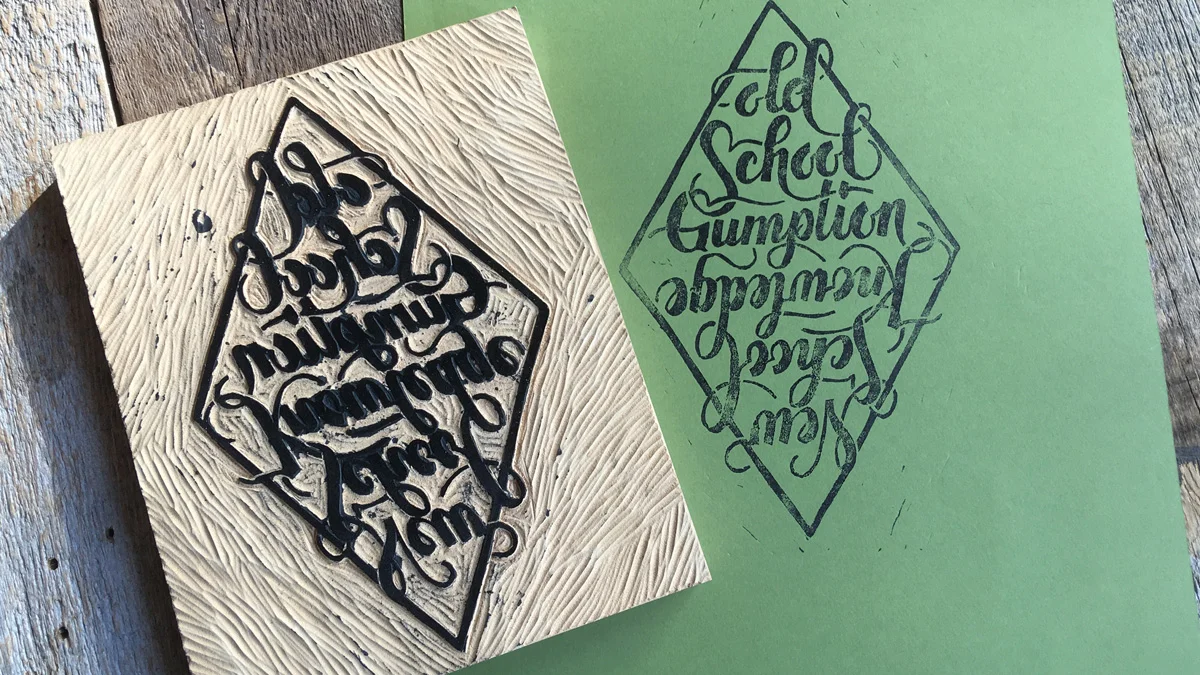 old
School
Gumption
New
School
Knowledge
old
School
Gumption
New
School
Knowledge